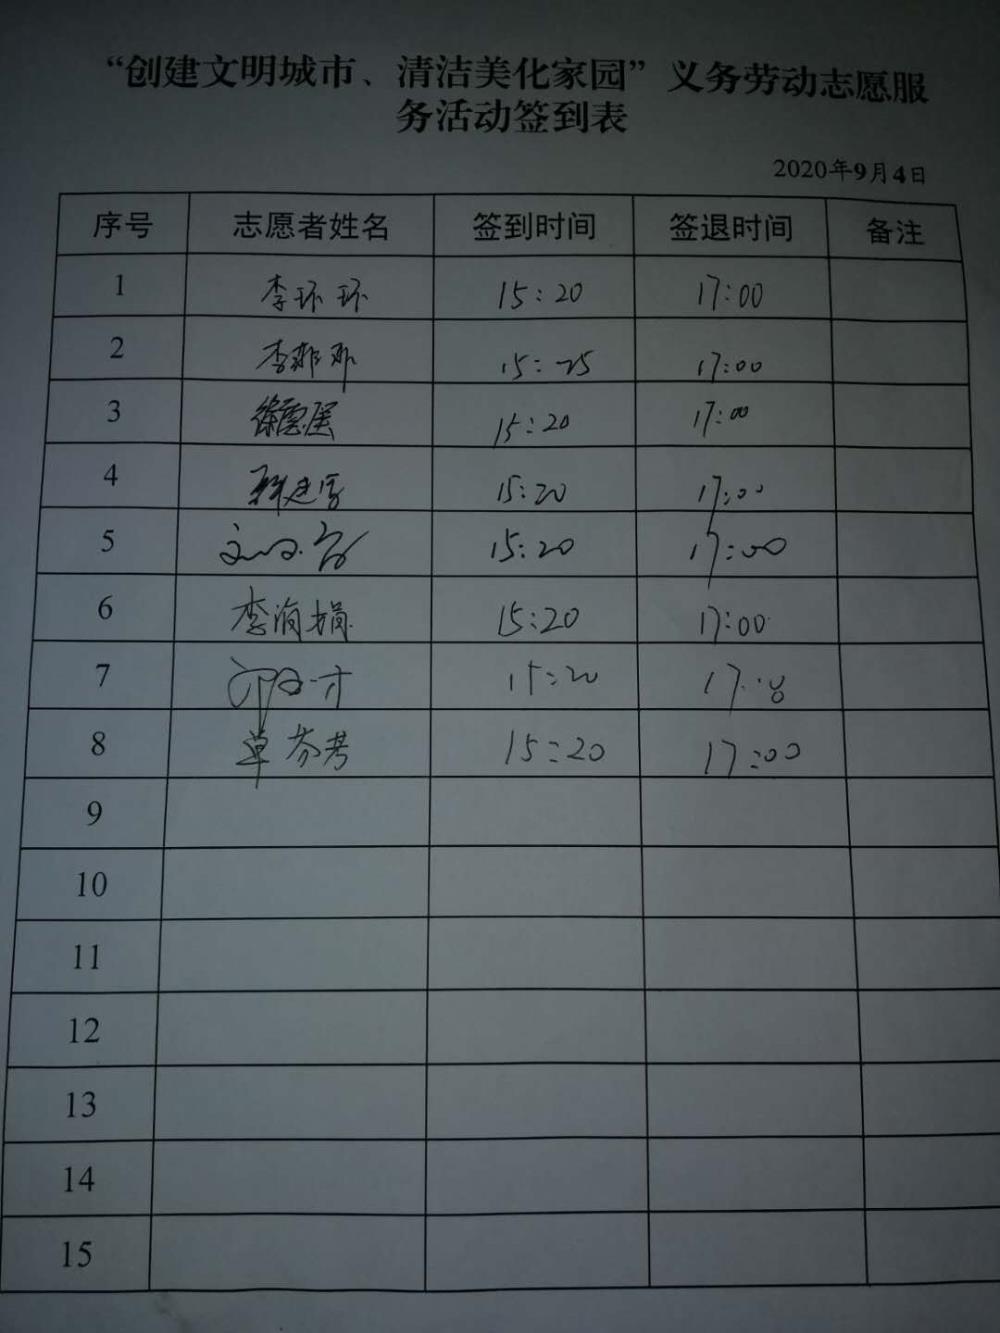 “创建文明城市、清洁美化家园”义务劳动志愿服
务活动签到表
2020年9月4日
序号 志愿者姓名 签到时间 签退时间 备注
1 李环环 15:20 17:00
2 李 15:25 17:00
3 徐 15:20 17:00
4 15:20 17:00
5 15:20 17:00
6 李润娟 15:20 17:00
7 15:20 17:00
8 草芬芳 15:20 17:00
9
10
11
12
13
14
15